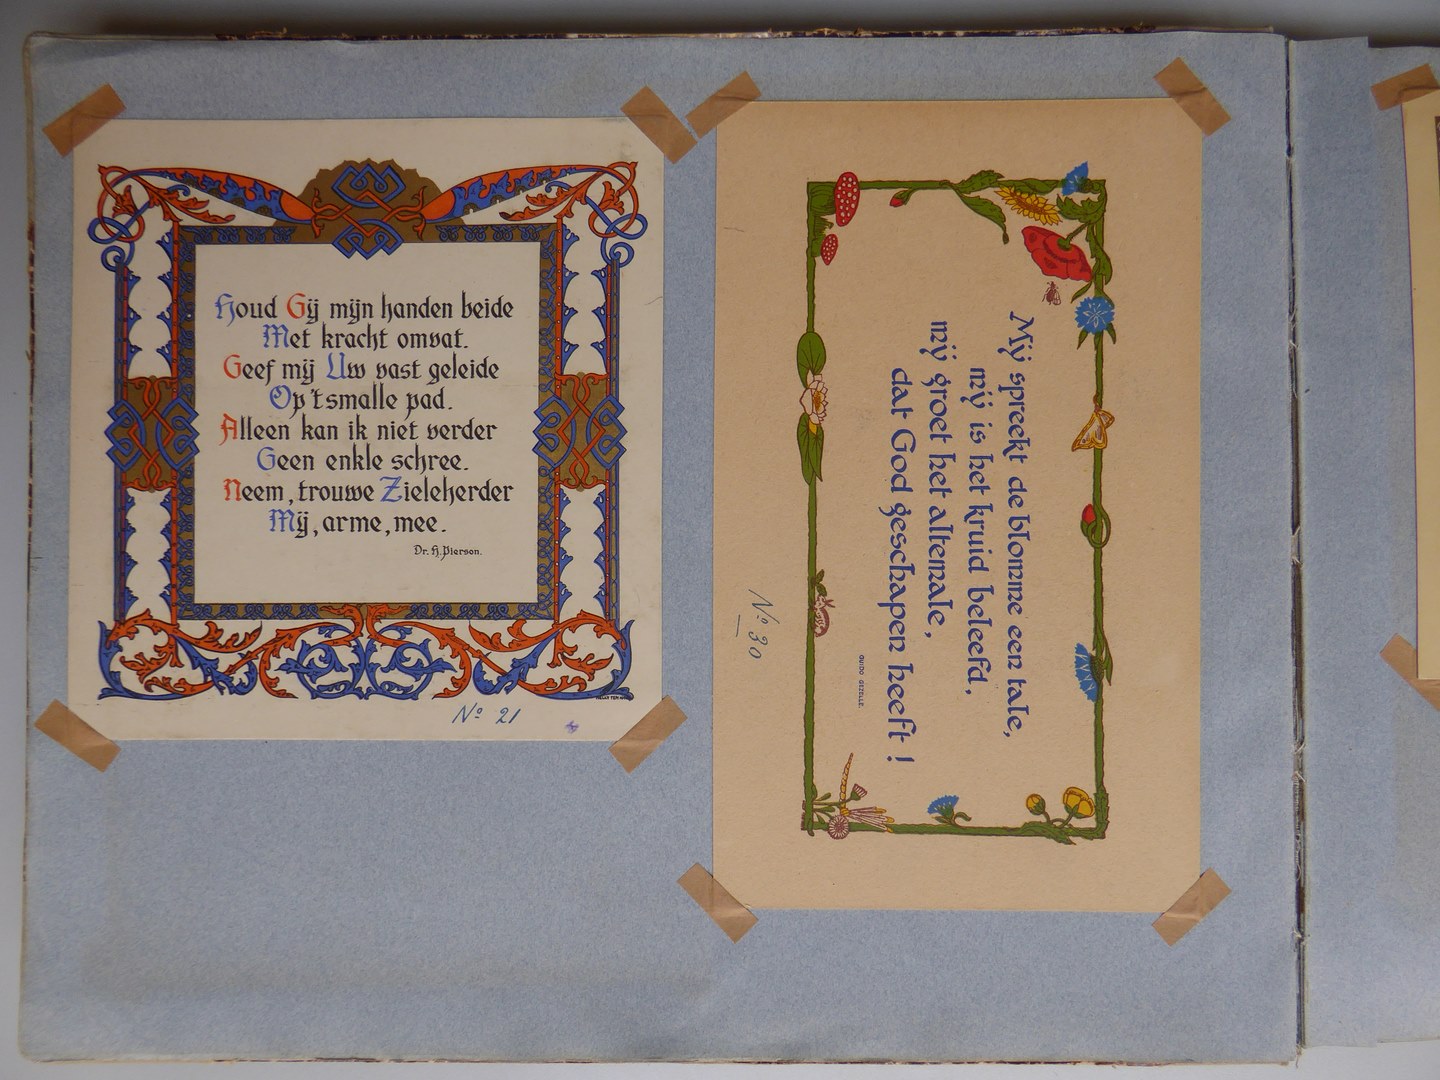 Houd Gij mijn handen beide
Met kracht omvat.
Geef mij Uw vast geleide
Op 't smalle pad.
Alleen kan ik niet verder
Geen enkle schree.
Neem, trouwe Zieleherder
Mij, arme, mee.
Dr. H. Pierson.
No 21
Mij spreekt de blomme een tale,
mij is het kruid beleefd,
mij groet het altemale,
dat God geschapen heeft!
GUIDO GEZELLE.
No 30